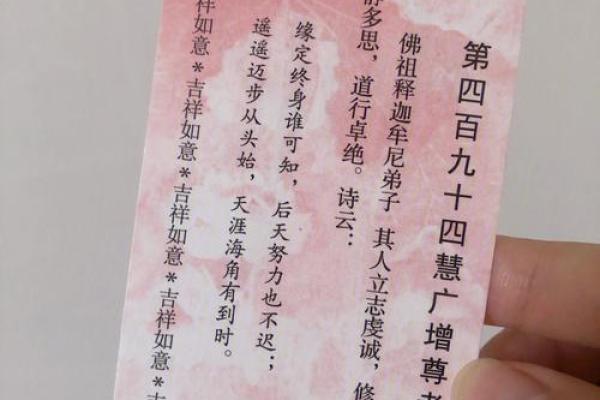 第四百九十四慧广增尊
佛祖释迦牟尼弟子 其人立志虔诚，修
静多思，道行卓绝。诗云：
缘定终身谁可知，后天努力也不迟；
遥遥迈步从头始，天涯海角有到时。
吉祥如意*吉祥如意*吉祥如意*吉祥如意*吉